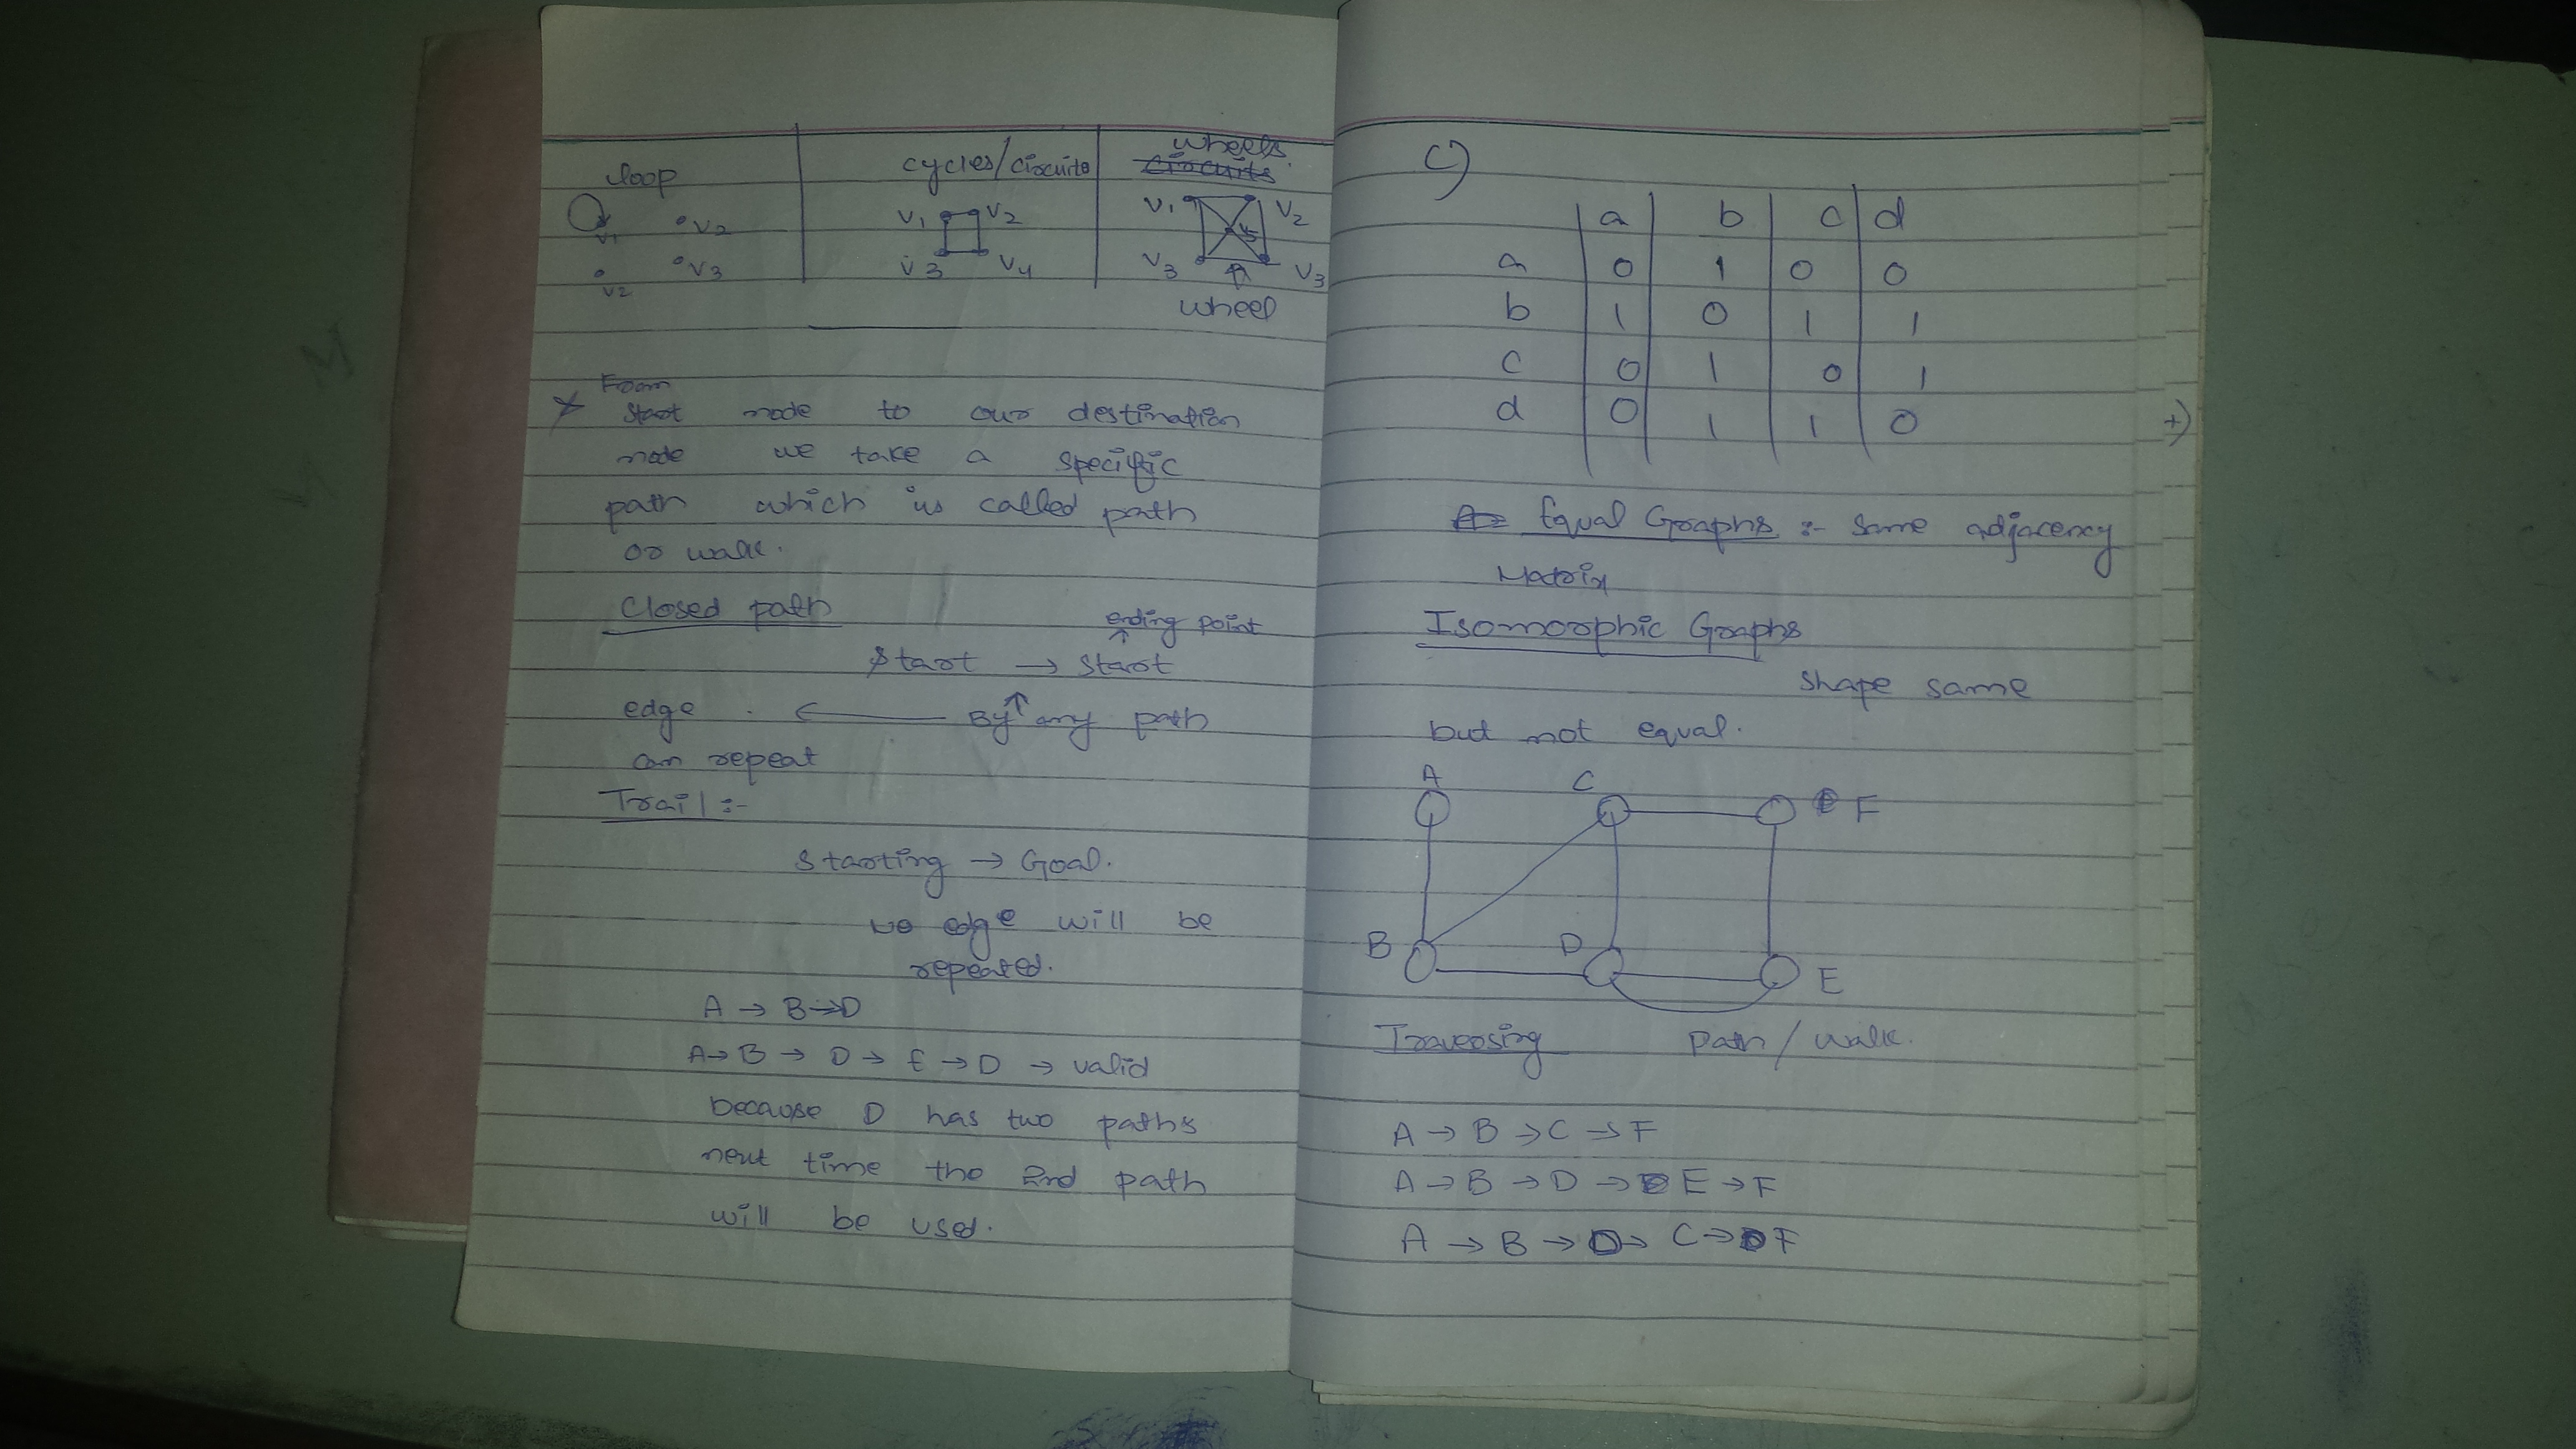 loop
cycles/circuits
wheels.
circuits
V1 V2
V2 V3
V1 V2
V3 V4
V1 V2
V3 V3
wheel
From
start node to our destination
node we take a specific
path which is called path
or walk.
Closed path
ending point
Start → Start
edge . ← By any path
can repeat
Trail :-
Starting → Goal.
No edge will be
repeated.
A → B → D
A → B → D → E → D → valid
because D has two paths
next time the 2nd path
will be used.
C)
a b c d
a 0 1 0 0
b 1 0 1 1
c 0 1 0 1
d 0 1 1 0
Equal Graphs :- Same adjacency
Matrix
Isomorphic Graphs
Shape same
but not equal.
A C F
B D E
Traversing Path / Walk.
A → B → C → F
A → B → D → E → F
A → B → D → C → F